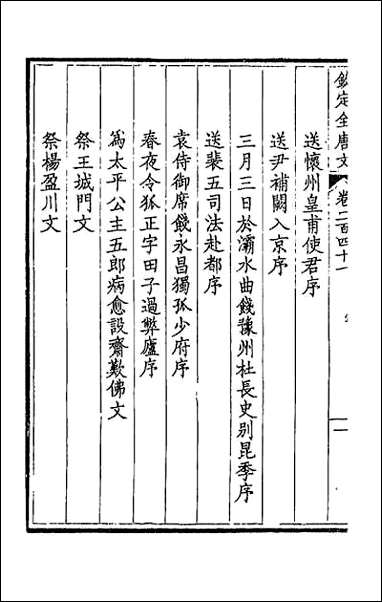 欽定全唐文
卷二百四十一
一
送懷州皇甫使君序
送尹補闕入京序
三月三日於灞水曲餞豫州杜長史别昆季序
送裴五司法赴都序
袁侍御席餞永昌獨孤少府序
春夜令狐正字田子過弊廬序
為太平公主五郎病愈設齋歎佛文
祭王城門文
祭楊盈川文